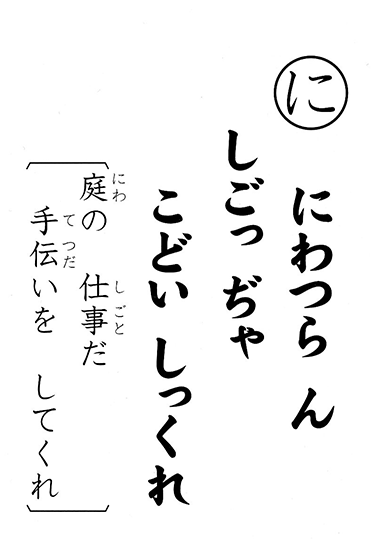 に
にわつら ん
しごっ ぢゃ
こどい しっくれ
庭の 仕事だ
手伝いを してくれ
にわ
しごと
てつだ